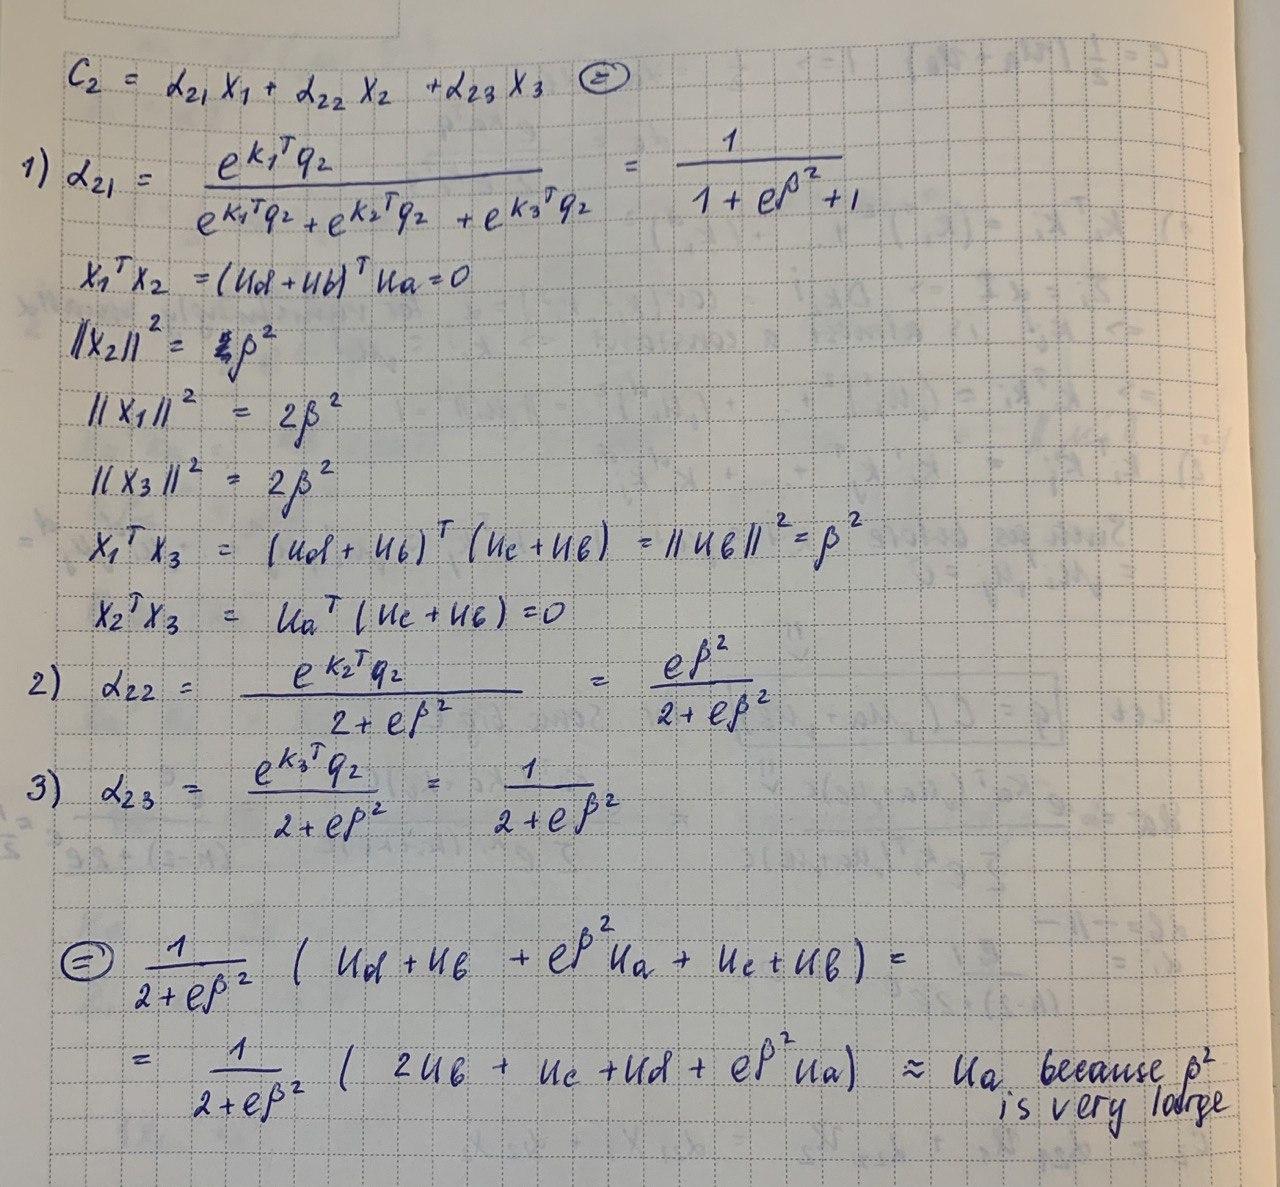 C₂ = α₂₁ x₁ + α₂₂ x₂ + α₂₃ x₃ ⊜
1) α₂₁ = e^{k₁ᵀq₂} / (e^{k₁ᵀq₂} + e^{k₂ᵀq₂} + e^{k₃ᵀq₂}) = 1 / (1 + e^{β²} + 1)
x₁ᵀx₂ = (u_d + u_b)ᵀ u_a = 0
||x₂||² = β²
||x₁||² = 2β²
||x₃||² = 2β²
x₁ᵀx₃ = (u_d + u_b)ᵀ (u_c + u_b) = ||u_b||² = β²
x₂ᵀx₃ = u_aᵀ (u_c + u_b) = 0
2) α₂₂ = e^{k₂ᵀq₂} / (2 + e^{β²}) = e^{β²} / (2 + e^{β²})
3) α₂₃ = e^{k₃ᵀq₂} / (2 + e^{β²}) = 1 / (2 + e^{β²})
⊜ 1 / (2 + e^{β²}) (u_d + u_b + e^{β²} u_a + u_c + u_b) =
= 1 / (2 + e^{β²}) (2u_b + u_c + u_d + e^{β²} u_a) ≈ u_a because β²
is very large